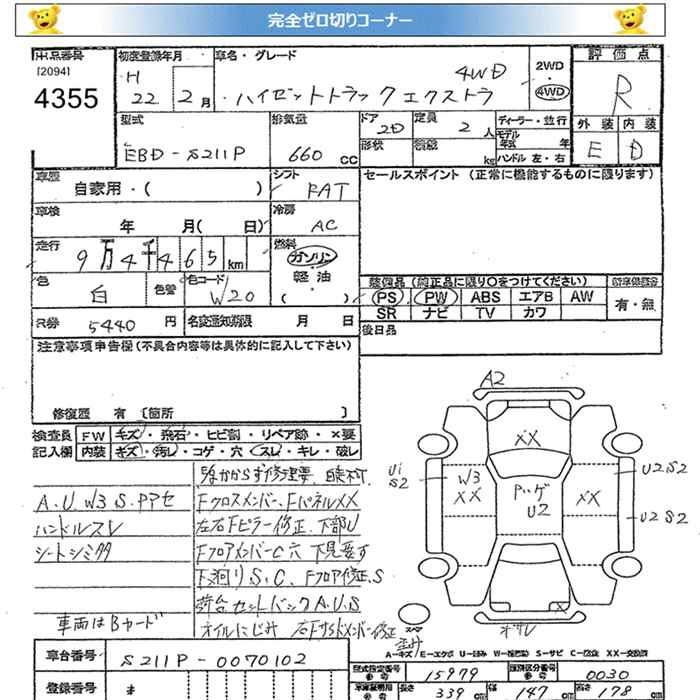 完全ゼロ切りコーナー
出品番号 初度登録年月 車名・グレード 評価点
[2094] H 4WD 2WD
4355 22 2月 ハイゼットトラック エクストラ 4WD R
型式 排気量 ドア 定員 ディーラー・並行 外装 内装
2D 2人 モデル年式 年
EBD-S211P 660 CC 形状 積載 kg ハンドル 左・右 E D
車歴 自家用・( ) シフト FAT セールスポイント(正常に機能するものに限ります)
車検 年 月( 日) 冷房 AC
走行 9万4千465km 燃料 ガソリン
軽油
色 白 色替 色コード W20 ( ) 装備品(純正品に限り○をつけてください)
PS PW ABS エアB AW 有・無
R券 5440円 名変通知期限 月 日 SR ナビ TV カワ
後日品
注意事項申告欄(不具合内容等は具体的に記入して下さい)
修復歴 有 [箇所 ]
検査員 FW キズ・飛石・ヒビ割・リペア跡・×要
記入欄 内装 キズ・汚レ・コゲ・穴・スレ・キレ・破レ
A2
XX
U1
S2
W3
XX
XX
U2
U2 S2
U2 S2
A.U W3 S.Pアセ FクロスメンバーFパネルXX
ハンドルスレ 左右Fピラー修正 下部U
シートシミタタ FフロアメンバーC穴 下見要す
下廻りS、C、Fフロア修正、S
荷台セットバックA.U.S
車両はBヤード オイルにじみ
スペア
A-キズ/E-エクボ U-凹 S-サビ C-腐食 XX-交換済
車台番号 S211P-0070102 型式指定番号 15979 類別区分番号 0030
登録番号 長さ 339 幅 147 高さ 178